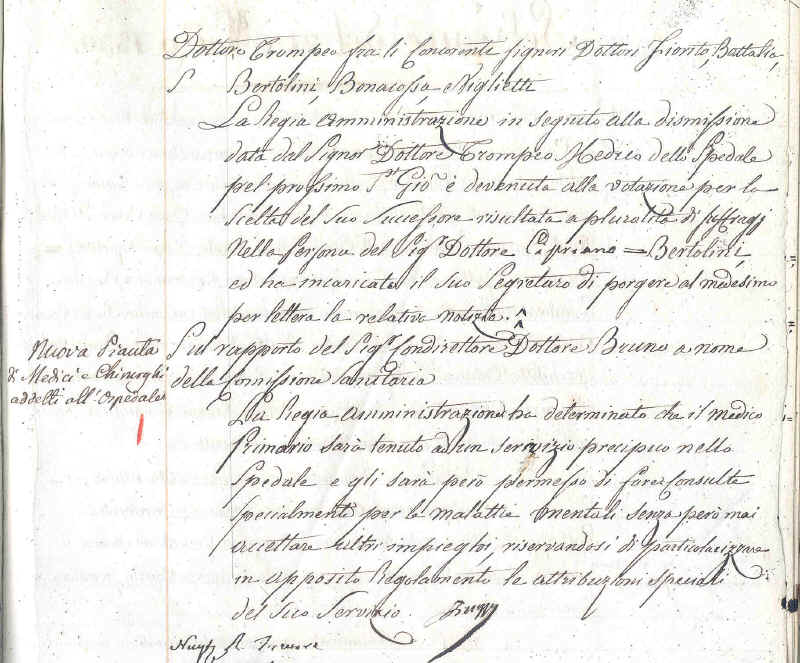 Dottore Trompeo fra li Concorrente Signori Dottori Fiorito, Battalia,
Bertolini, Bonacossa, Niglietti
La Regia Amministrazione in seguito alla dismissione
data dal Signor Dottore Trompeo Medico dello Spedale
pel prossimo Gio è devenuta alla votazione per la
scelta del Suo Successore risultata a pluralità di suffragj
Nella Persona del Sigr Dottore Cipriano = Bertolini
ed ha incaricato il Suo Segretaro di porgere al medesimo
per lettera la relativa notizia.
Nuova Pianta
di Medici e Chirurghi
addetti all'Ospedale
Sul rapporto del Sigr Condirettore Dottore Bruno a nome
della Comissione Sanitaria
La Regia Amministrazione ha determinato che il Medico
Primario sarà tenuto ad un servizio precipuo nello
Spedale e gli sarà però permesso di fare consulte
specialmente per le malattie mentali senza però mai
accettare altri impieghi riservandosi di particolarizzare
in apposito Regolamento le attribuzioni speciali
del Suo Servizio.